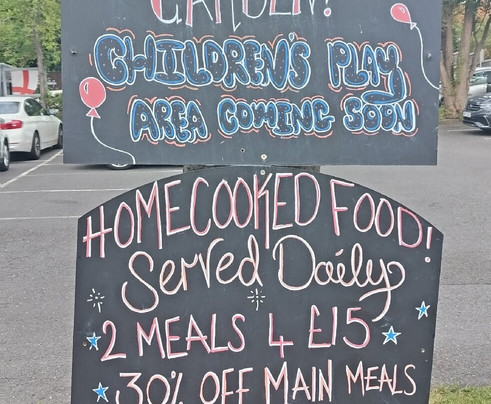 GARDEN!
CHILDREN'S PLAY
AREA COMING SOON
HOMECOOKED FOOD!
Served Daily
2 MEALS 4 £15
30% OFF MAIN MEALS